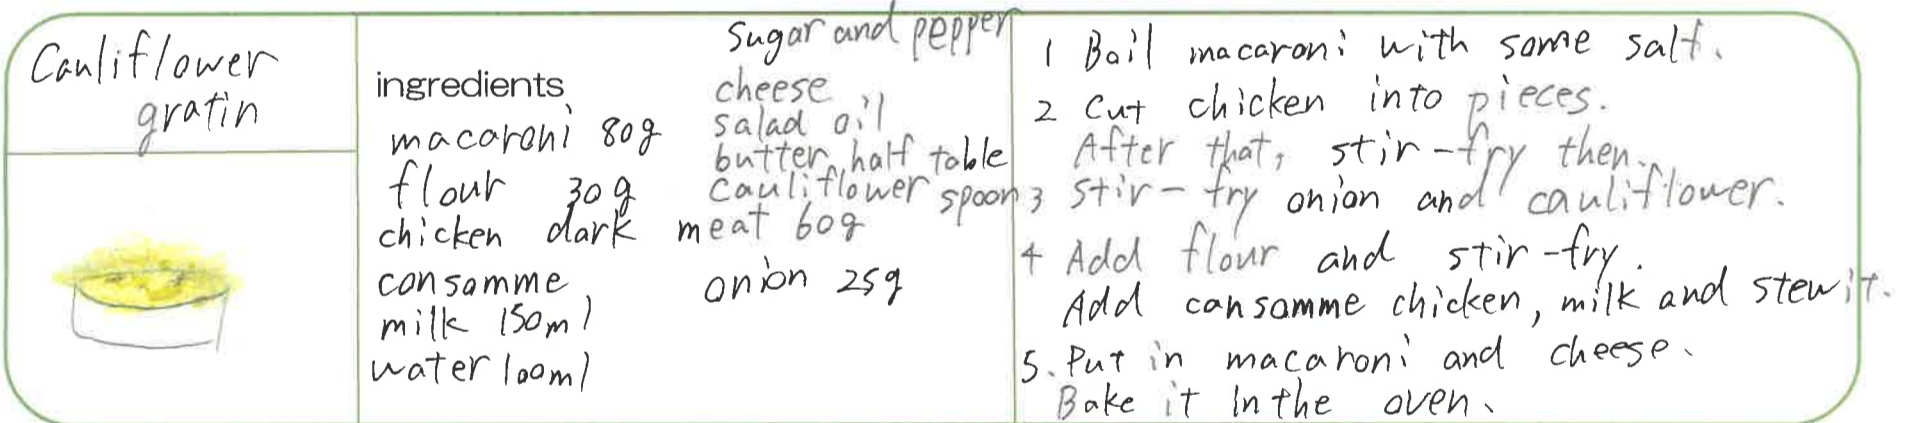 Cauliflower
gratin
ingredients
macaroni 80g
flour 30g
chicken dark meat 60g
consomme
milk 150ml
water 100ml
sugar and pepper
cheese
salad oil
butter half table
spoon
cauliflower
onion 25g
1 Boil macaroni with some salt.
2 Cut chicken into pieces.
After that, stir-fry then.
3 stir-fry onion and cauliflower.
4 Add flour and stir-fry.
Add consomme chicken, milk and stew it.
5. Put in macaroni and cheese.
Bake it in the oven.